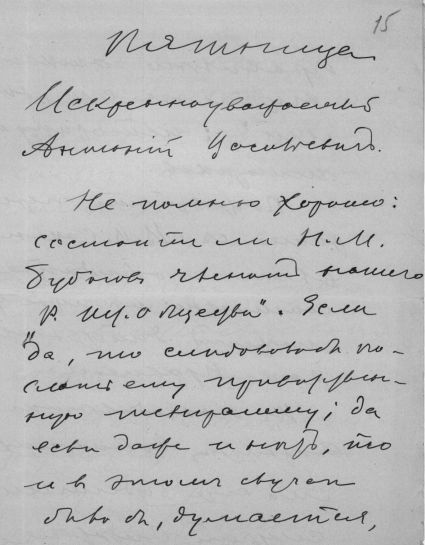 15
Пятница
Искренноуважаемый
Антоній Іосифовичъ.
Не помню хорошо:
состоитъ ли Н. М.
членомъ нашего
"Р. общества". Если
да, то слѣдовало бъ по-
слать ему привѣтствен-
ную телеграмму; да
если даже и нѣтъ, то
и в этомъ случаѣ
было бъ, думается,